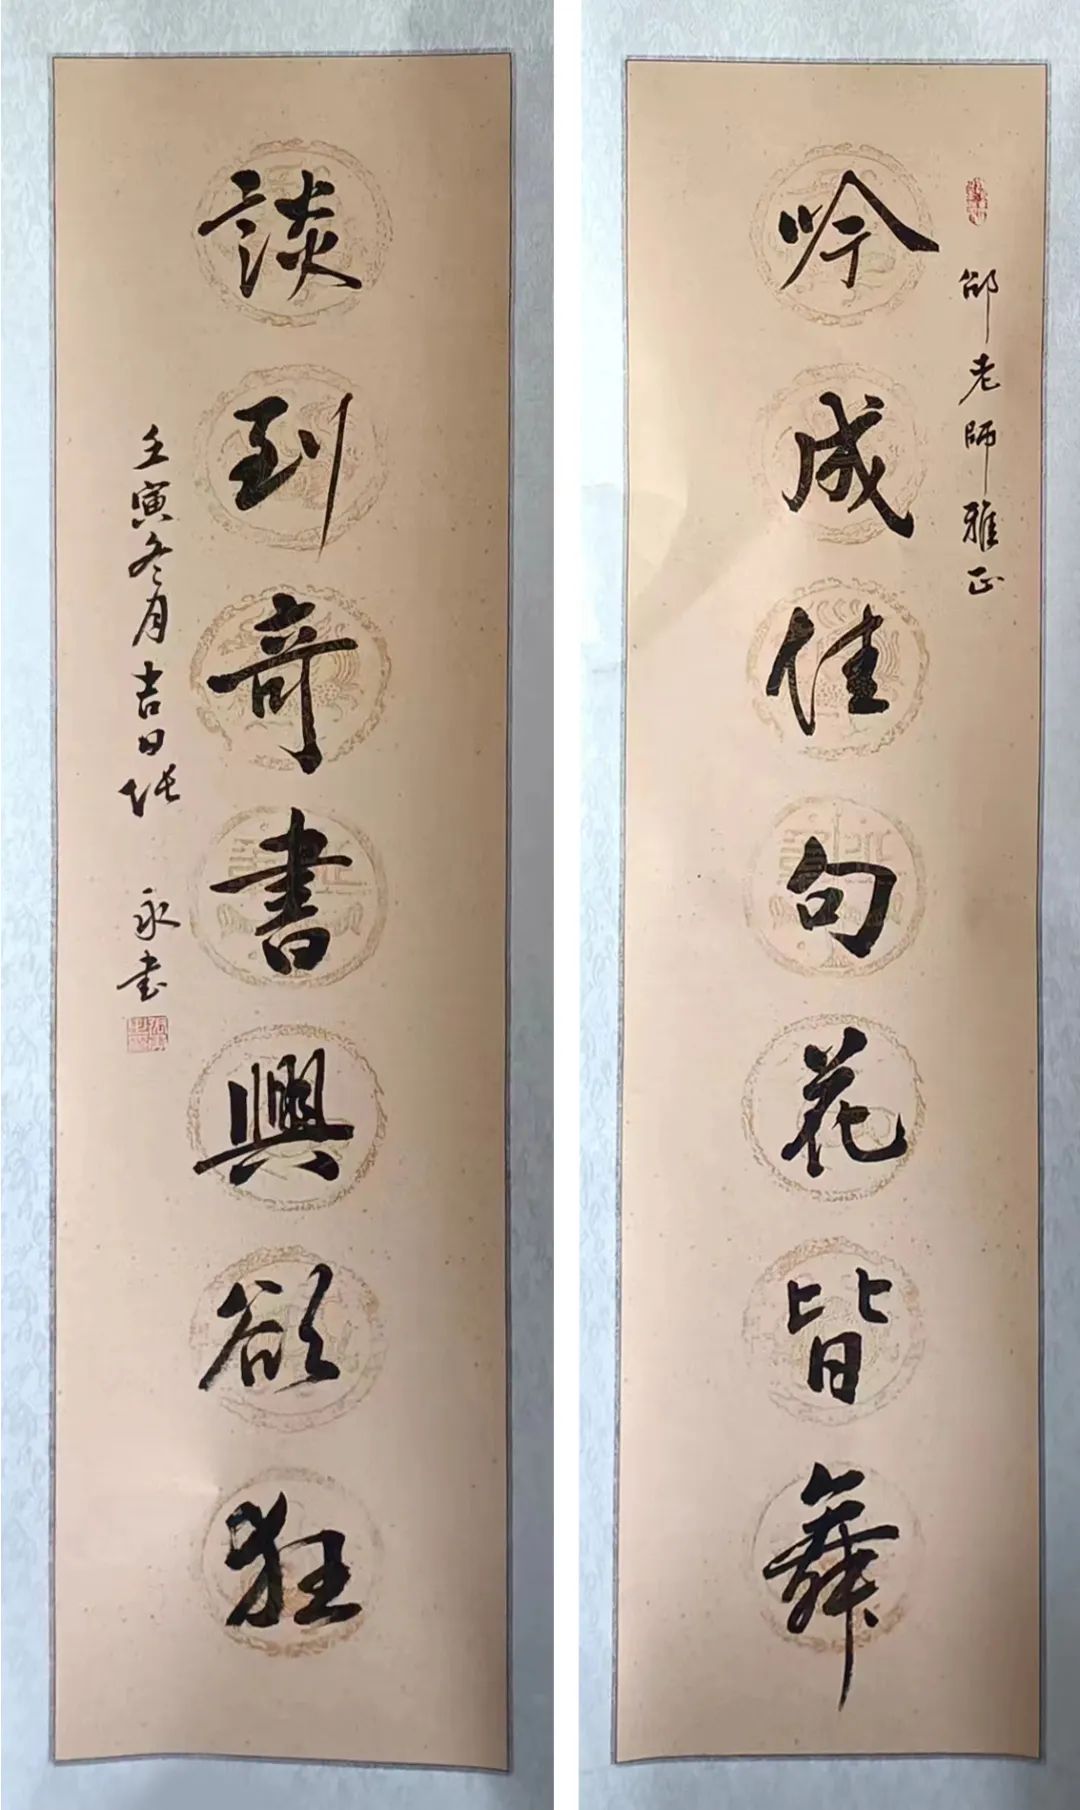 邰老師雅正
吟成佳句花皆舞
談到奇書興欲狂
壬寅冬月吉日張永書